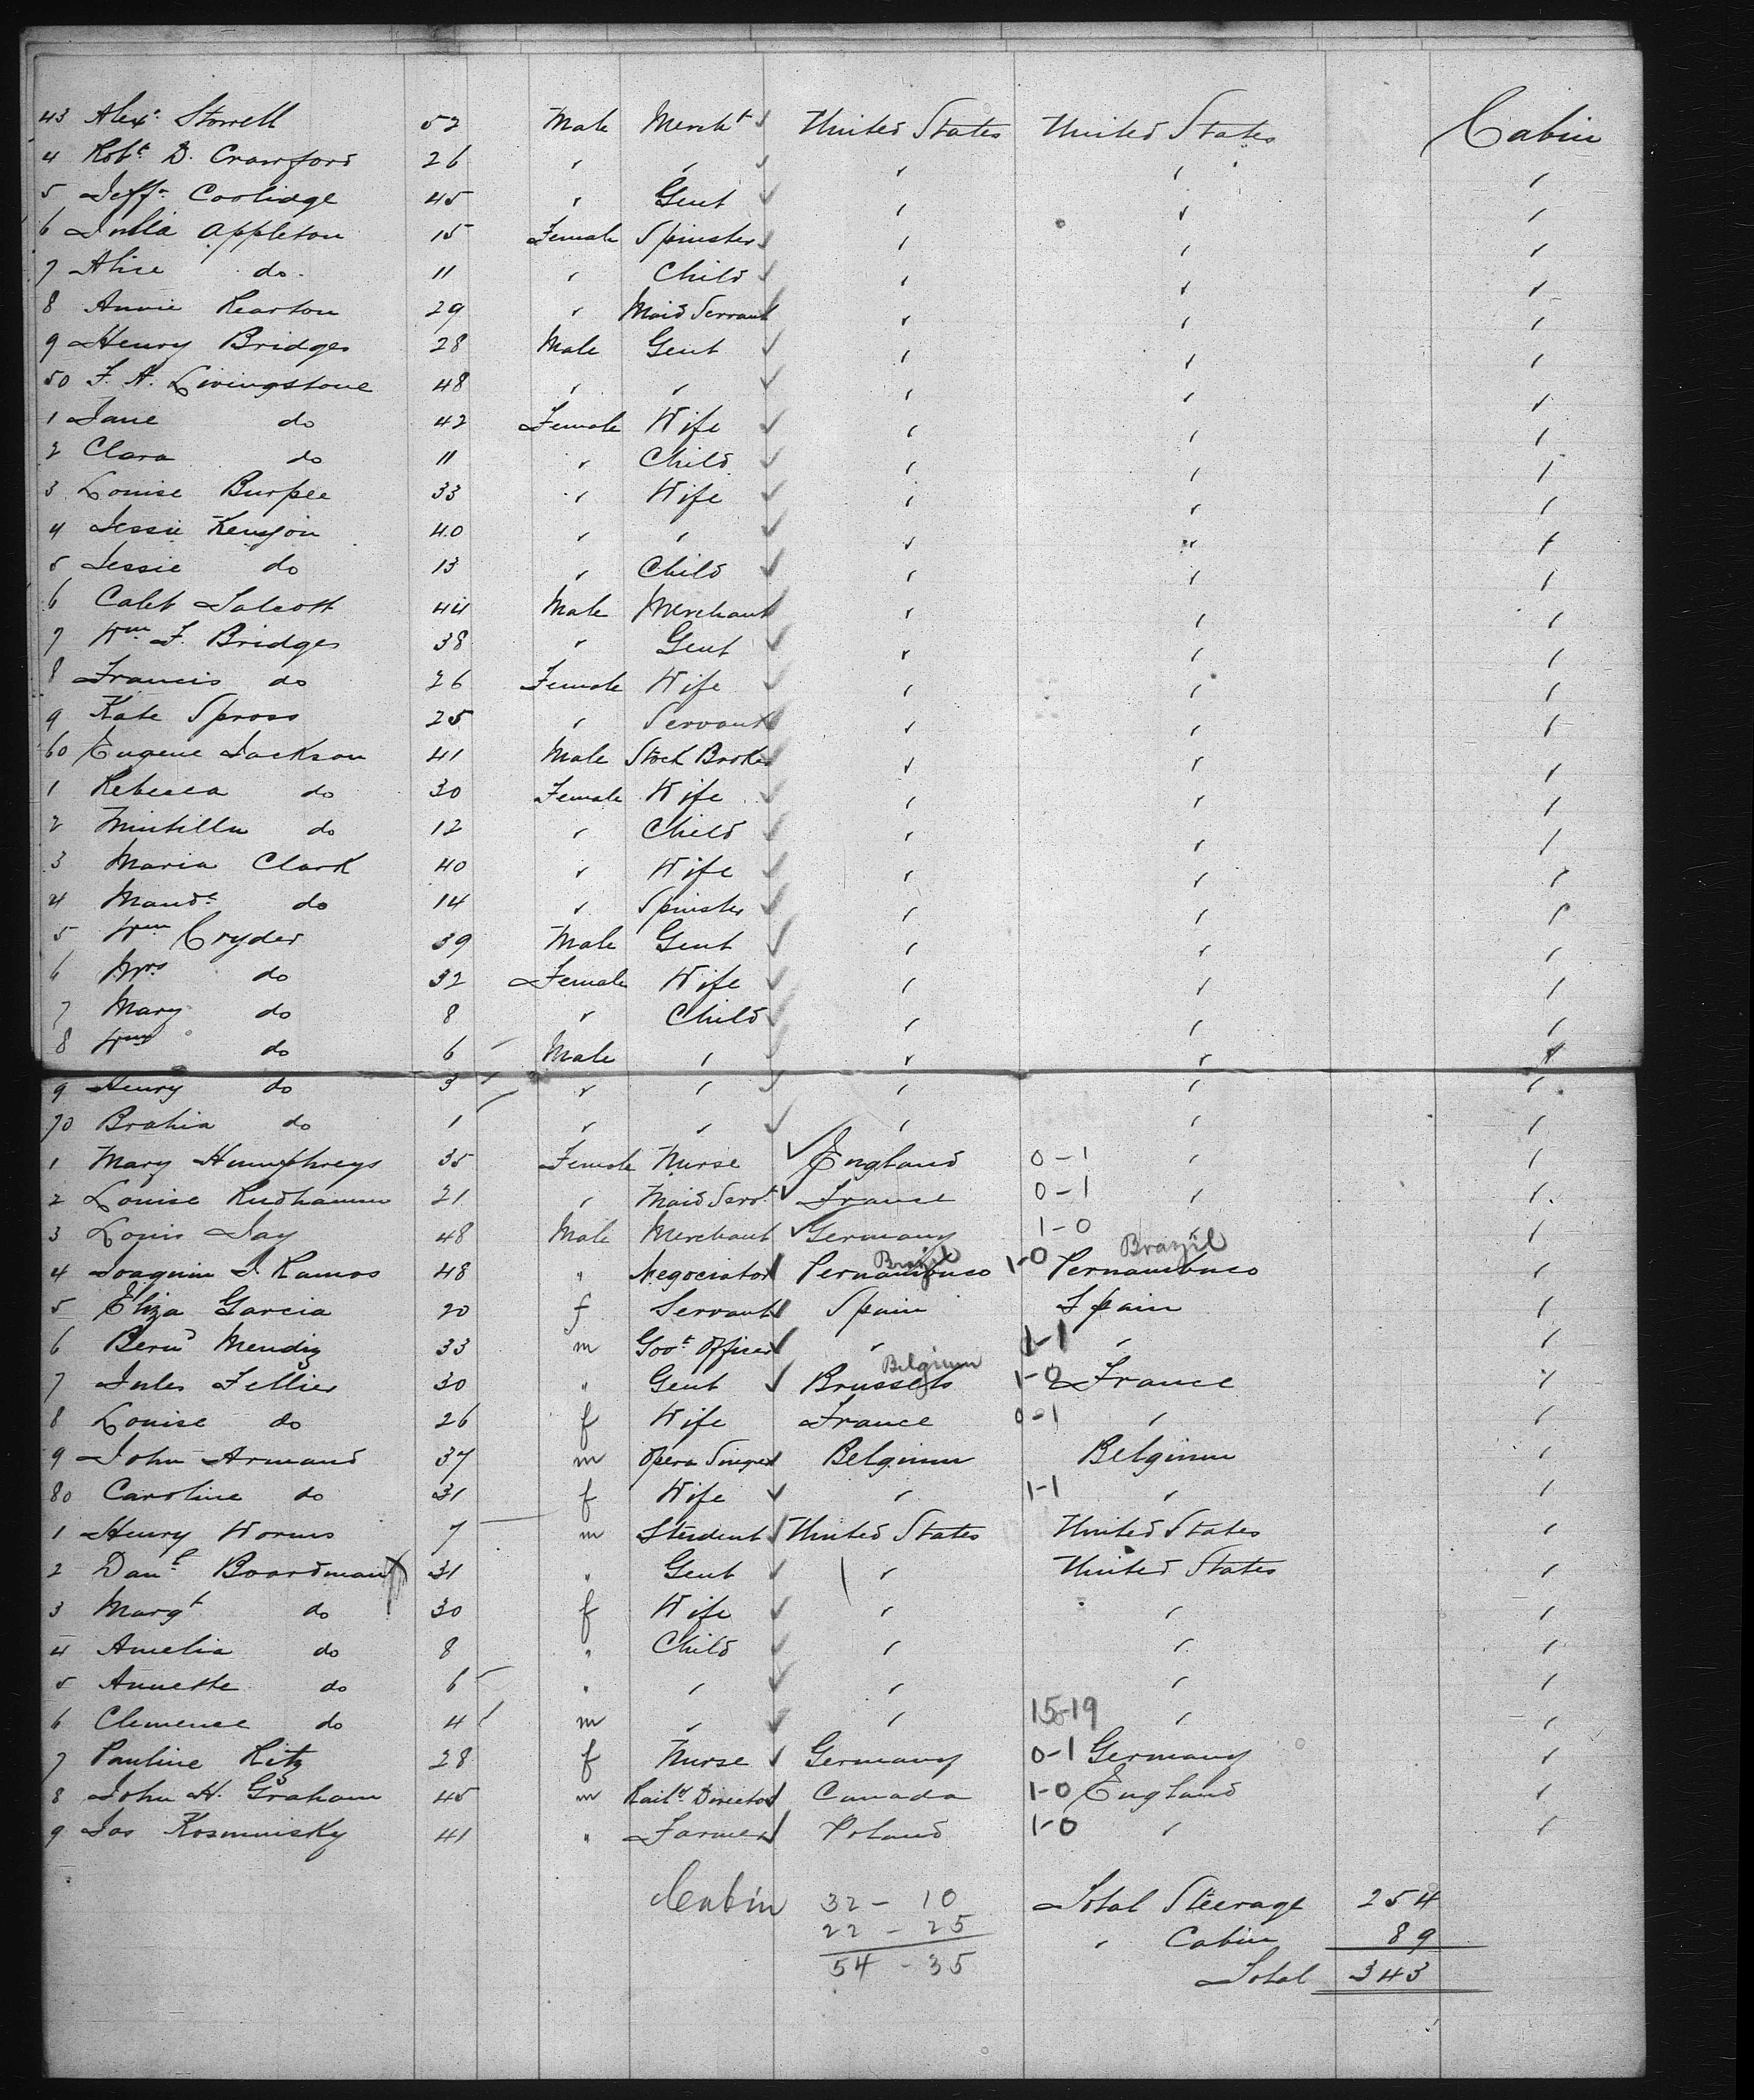 43 Alexr. Storrell 52 Male Mercht United States United States Cabin
4 Robt. D. Crawford 26 " " " " "
5 Jeffn. Coolidge 45 " Gent " " "
6 Julia Appleton 15 Female Spinster " " "
7 Alice do. 11 " Child " " "
8 Annie Rearton 29 " Maid Servant " " "
9 Henry Bridges 28 Male Gent " " "
50 F. A. Livingstone 48 " " " " "
1 Jane do 42 Female Wife " " "
2 Clara do 11 " Child " " "
3 Louise Burpee 33 " Wife " " "
4 Jessie Kenyon 40 " " " " "
5 Jessie do 13 " Child " " "
6 Caleb Talcott 44 Male Merchant " " "
7 Wm F. Bridges 38 " Gent " " "
8 Francis do 26 Female Wife " " "
9 Kate Spross 25 " Servant " " "
60 Eugene Jackson 41 Male Stock Broker " " "
1 Rebecca do 30 Female Wife " " "
2 do 12 " Child " " "
3 Maria Clark 40 " Wife " " "
4 Maude do 14 " Spinster " " "
5 Wm Cryder 39 Male Gent " " "
6 Mrs do 32 Female Wife " " "
7 Mary do 8 " Child " " "
8 Wm do 6 Male " " " "
9 Henry do 3 " " " " "
70 Brahia do 1 " " " " "
1 Mary Humphreys 35 Female Nurse England 0-1 " "
2 Louise 21 " Maid Servt France 0-1 " "
3 Louis Jay 48 Male Merchant Germany 1-0 " "
4 Joaquim J. Ramos 48 " Negociator Pernambuco Brazil 1-0 Pernambuco Brazil "
5 Eliza Garcia 20 f Servant Spain Spain "
6 Bernd Mendiz 33 m Govt Officer " 1-1 " "
7 Jules Tellier 30 " Gent Brussels Belgium 1-0 France "
8 Louise do 26 f Wife France 0-1 " "
9 John Armand 37 m Opera Singer Belgium Belgium "
80 Caroline do 31 f Wife " 1-1 " "
1 Henry Worms 7 m Student United States United States "
2 Danl. Boardman 31 " Gent " United States "
3 Margt do 30 f Wife " " "
4 Amelia do 8 " Child " " "
5 Annette do 6 " " " " "
6 Clemence do 4 m " " 15-19 " "
7 Pauline Ritz 28 f Nurse Germany 0-1 Germany "
8 John H. Graham 45 m Railwy Director Canada 1-0 England "
9 Jos Kosminisky 41 " Farmer Poland 1-0 " "
Cabin 32 - 10 Total Steerage 254
22 - 25 " Cabin 89
54 - 35 Total 343